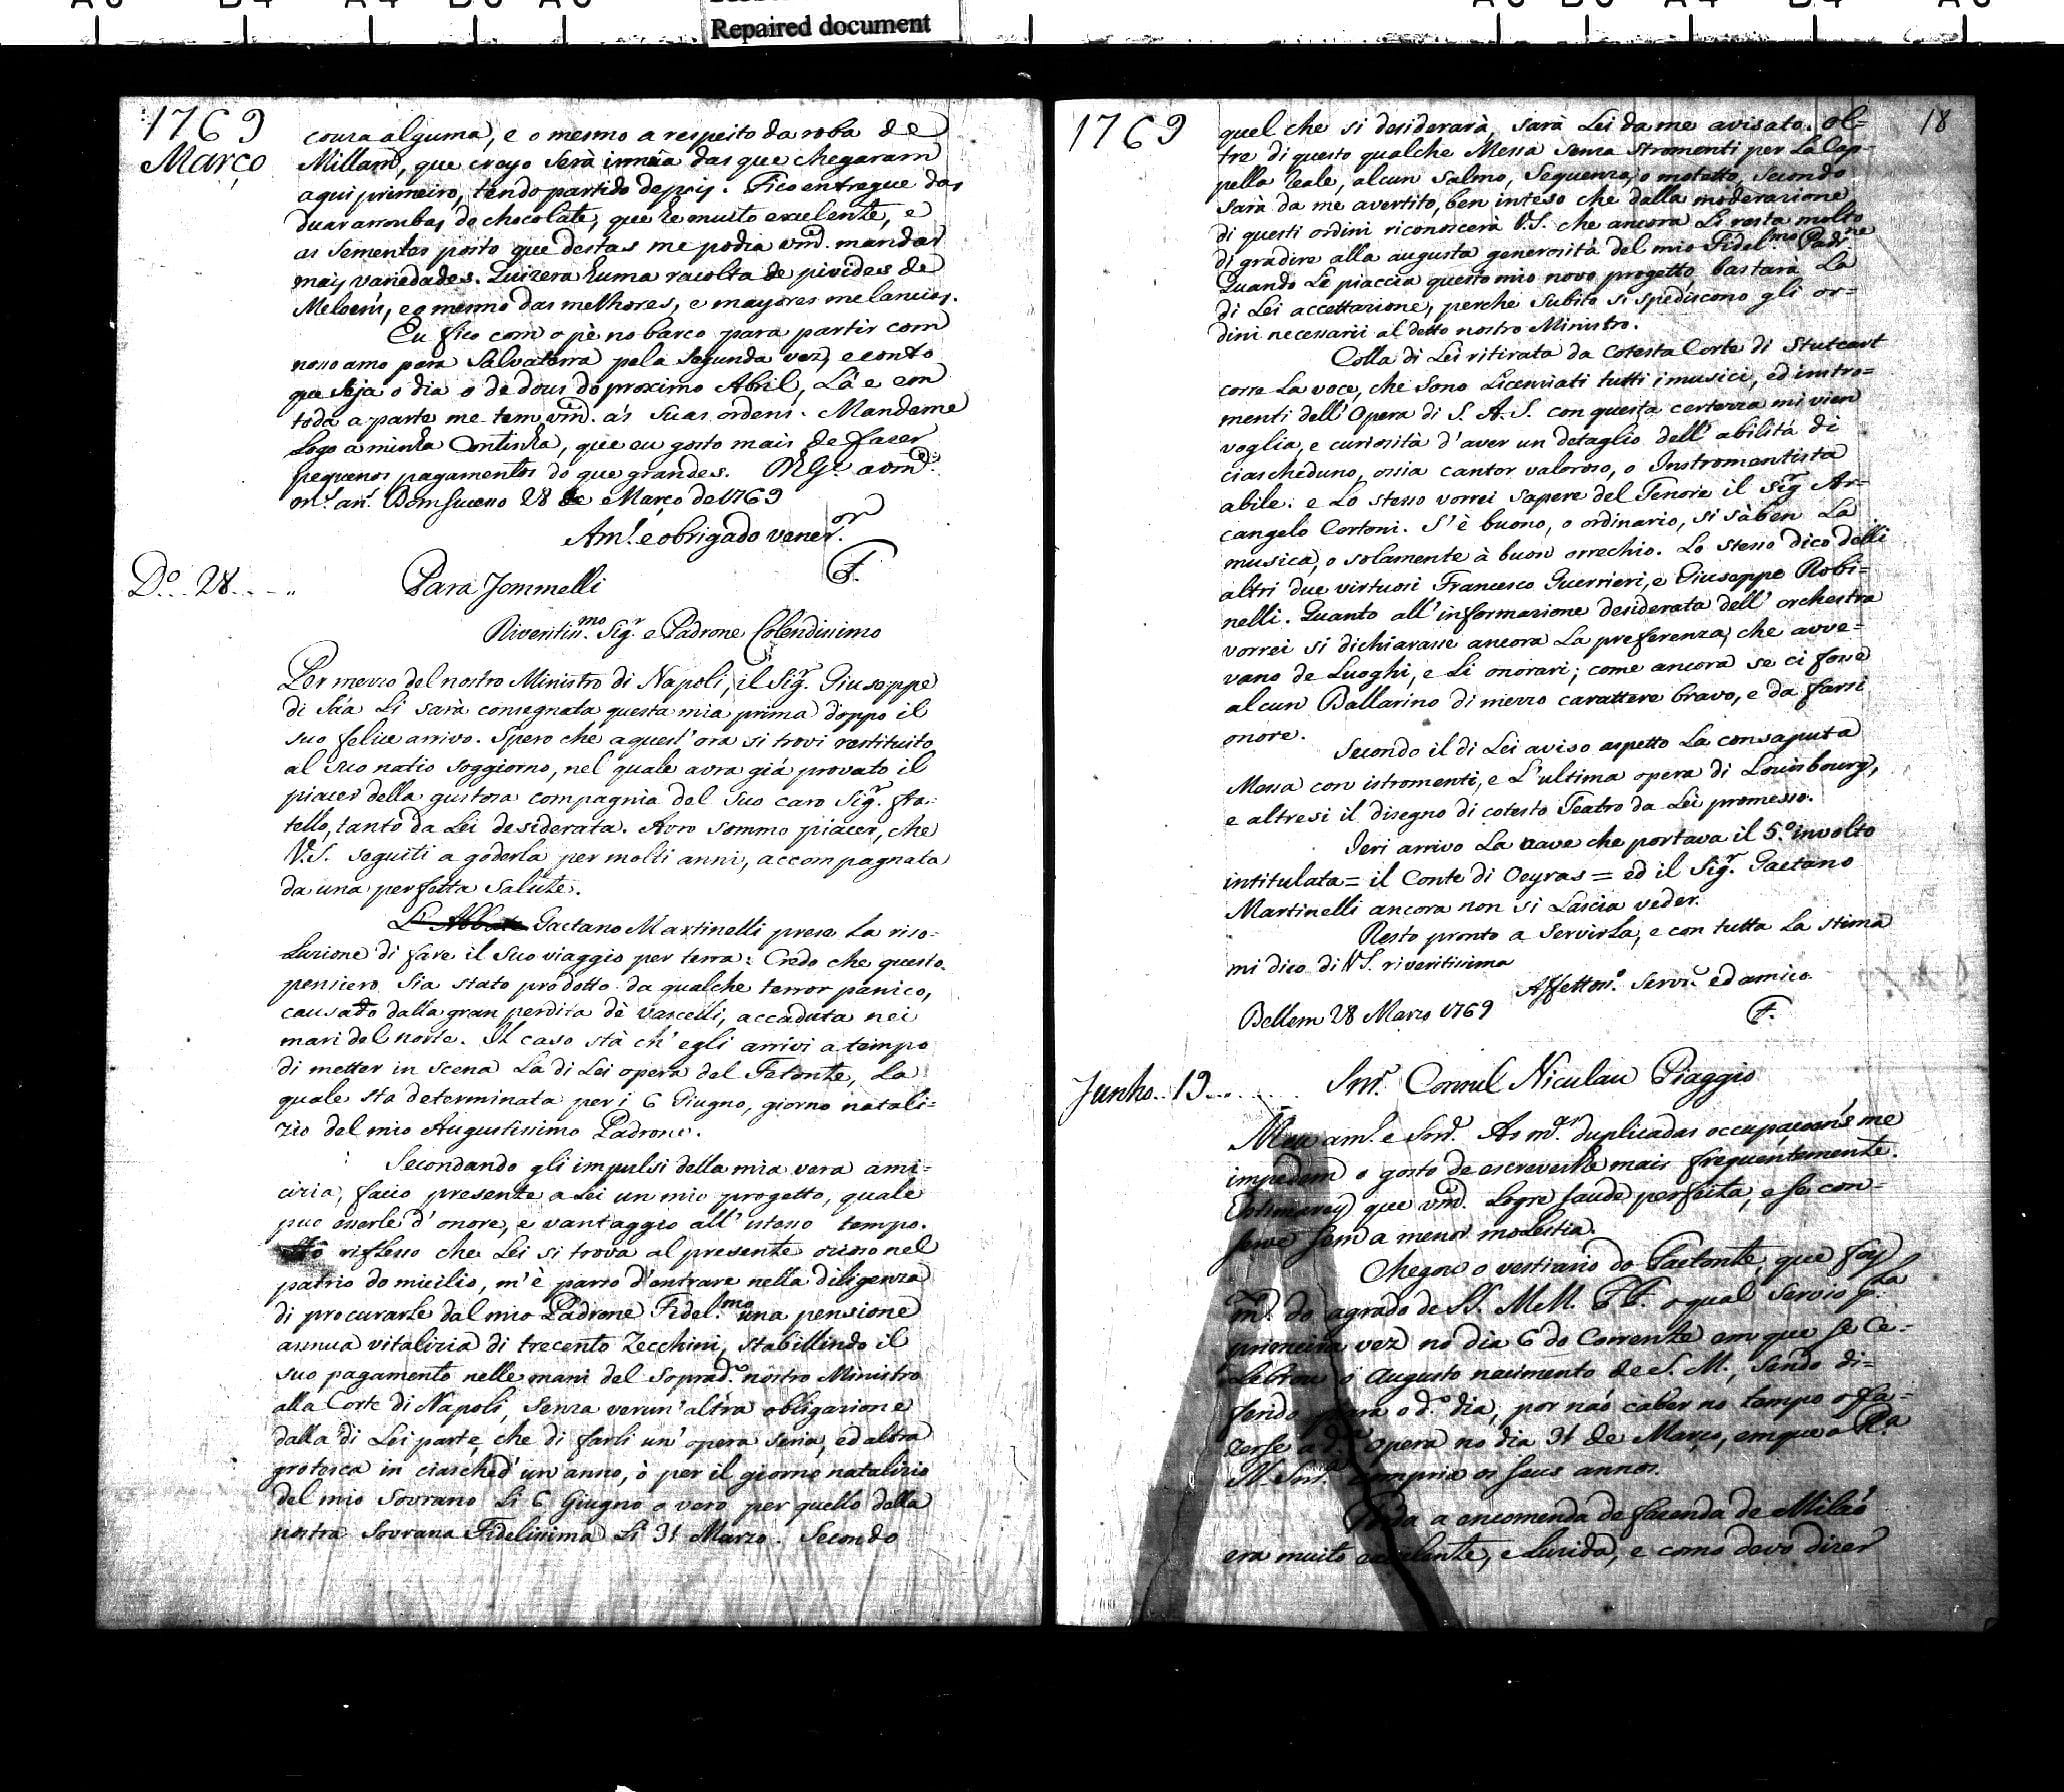 Repaired document
1769
Março
cousa alguma, e o mesmo a respeito da roba de
Millam, que creyo será irmãa das que chegaram
aqui primeiro, tendo partido depois. Fico entregue das
duas arrobas do chocolate, que he muito excelente, e
as sementes posto que destas me podia vm.ce mandar
mais variedades. Quizera huma racolta de pivides de
Meloens, e o mesmo das melhores, e mayores melancias.
Eu fico com o pè no barco para partir com
nosso amo para Salvaterra pela segunda vez, e conto
que seja o dia o de dous do proximo Abril, Lá e em
toda a parte me tem vm.ce ás suas ordens. Mandeme
logo a minha Continha, que eu gosto mais de fazer
pequenos pagamentos do que grandes. D.s G.e a vm.ce
m.s an.s Bomsucesso 28 de Março de 1769
Am.o e obrigado vener.or
F.
D.o 28
Para Jommelli
Riveritiss.mo Sig.r e Padrone Colendissimo
Per mezzo del nostro Ministro di Napoli, il Sig.r Giuseppe
di Sáa Li sarà consegnata questa mia prima doppo il
suo felice arrivo. Spero che a quest' ora si trovi restituito
al suo natio soggiorno, nel quale avra giá provato il
piacer della gustosa compagnia del suo caro Sig.r fra-
tello, tanto da Lei desiderata. Avro sommo piacer, che
V.S. seguiti a goderla per molti anni, accompagnata
da una perfetta salute.
L' Abbate Gaetano Martinelli prese la riso-
luzione di fare il suo viaggio per terra: Credo che questo
pensiero sia stato prodotto da qualche terror panico,
causato dalla gran perdita dè vascelli, accaduta nei
mari del norte. Il caso stà ch' egli arrivi a tempo
di metter in scena La di Lei opera del Fetonte, La
quale sta determinata per i 6 Giugno, giorno natali-
zio del mio Augustissimo Padrone.
Secondando gli impulsi della mia vera ami-
cizia, faccio presente a Lei un mio progetto, quale
puo esserle d' onore, e vantaggio all' istesso tempo.
Hò riflesso che Lei si trova al presente ozioso nel
patrio domicilio, m' è parso d'entrare nella diligenza
di procurarle dal mio Padrone Fidel.mo una pensione
annua vitalizia di trecento Zecchini, stabillindo il
suo pagamento nelle mani del soprad.o nostro Ministro
alla Corte di Napoli, senza verun' altra obligazione
dalla di Lei parte, che di farli un' opera seria, ed altra
grotesca in ciasched' un' anno, ò per il giorno natalizio
del mio Sovrano Li 6 Giugno o vero per quello della
nostra Sovrana Fidelissima Li 31 Marzo. Secondo
1769
18
quel che si desiderarà, sarà Lei da me avisato. ol-
tre di questo qualche Messa senza stromenti per La Cap-
pella reale, alcun salmo, sequenza, o motetto, secondo
sarà da me avertito, ben inteso che dalla moderazione
di questi ordini riconoscerà V.S. che ancora Li resta molto
di gradire alla augusta generosità del mio Fidel.mo Padr.ne
Quando Le piaccia questo mio novo progetto bastarà La
di Lei accettazione, perche subito si spediscono gli or-
dini necessarii al detto nostro Ministro.
Colla di Lei ritirata da cotesta Corte di Stutcart
corre La voce, che sono Licenziati tutti i musici, ed instro-
menti dell' Opera di S. A. S. con questa certezza mi vien
voglia, e curiosità d' aver un detaglio dell' abilitá di
ciascheduno, ossia cantor valoroso, o Instromentista
abile. e Lo stesso vorrei sapere del Tenore il Sig.r Ar-
cangelo Cortoni. S' è buono, o ordinario, si sà ben La
musica, o solamente à buon orrechio. Lo stesso dico delli
altri due virtuosi Francesco Guerrieri, e Giuseppe Robi-
nelli. Quanto all' informazione desiderata dell' orchestra
vorrei si dichiarasse ancora La preferenza, che avve-
vano de Luoghi, e Li onorari; come ancora se ci fosse
alcun Ballarino di mezzo carattere bravo, e da farsi
onore.
Secondo il di Lei aviso aspetto La consaputa
Messa con istromenti, e L' ultima opera di Louisbourg,
e altresi il disegno di cotesto Teatro da Lei promesso.
Jeri arrivo La nave che portava il 5.o involto
intitulata = il Conte di Oeyras = ed il Sig.r Gaetano
Martinelli ancora non si Lascia veder.
Resto pronto a servirLa, e con tutta La stima
mi dico di V.S. riveritissima
Affettos.o Serv.e ed amico
Bellem 28 Marzo 1769
F.
Junho 19
Snr. Consul Niculau Piaggio
Meu am.o e Snr. As m.s duplicadas occupaçoens me
impedem o gosto de escreverlhe mais frequentemente.
Estimarey que vm.ce Logre saude perfeita, e se con-
serve sem a menor molestia.
Chegou o vestiario do Faetonte, que foy
m.to do agrado de SS. MM. FF. o qual servio p.la
primeira vez no dia 6 do Corrente em que se Ce-
lebrou o Augusto nacimento de S. M., sendo di-
ferido para o d.o dia, por não caber no tempo o fa-
zerse a d.a opera no dia 31 de Março, em que a R.a
N. Snr.a compria os seus annos.
Toda a encomenda de fazenda de Milão
era muito excelente, e Luzida, e como devo dizer